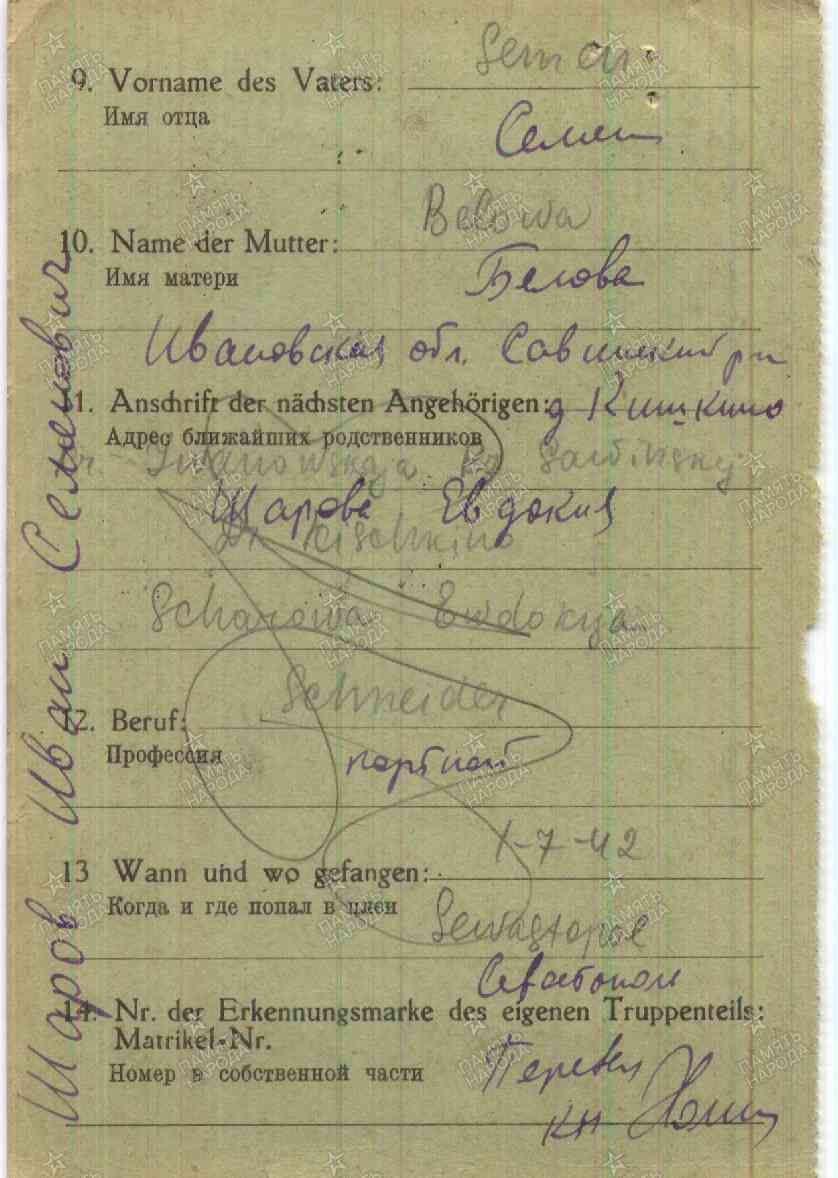 Semen
9. Vorname des Vaters:
Имя отца
Семен
Belowa
10. Name der Mutter:
Имя матери
Белова
Ивановская обл. Савинский р-н
11. Anschrift der nächsten Angehörigen: д Кишкино
Адрес ближайших родственников
Iwanowskaja Sawinsky
Шарова Евдокия
Kischkino
Scharowa Ewdokija
Schneider
12. Beruf:
Профессия
портной
1-7-42
13 Wann und wo gefangen:
Когда и где попал в плен
Sewastopol
Севастополь
14. Nr. der Erkennungsmarke des eigenen Truppenteils:
Matrikel-Nr.
Номер в собственной части
Перевел
Шаров Иван Семенович
ПАМЯТЬ НАРОДА